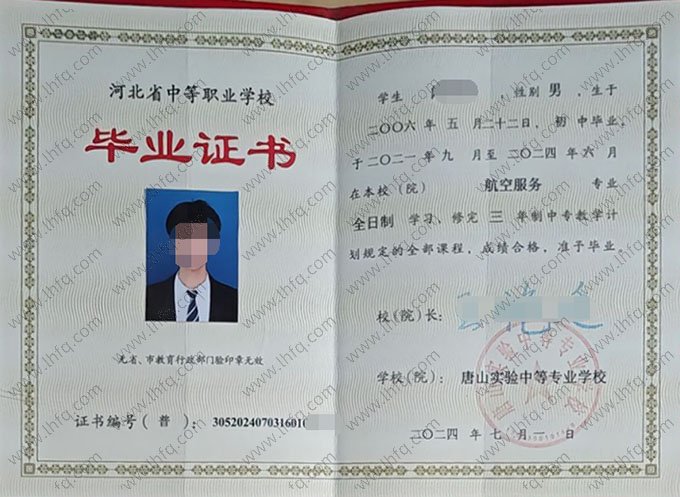 河北省中等职业学校
毕业证书
无省、市教育行政部门验印章无效
证书编号(普):3052024070316010
学生 ,性别 男 ,生于
二〇〇六 年 五 月 二十二日,初 中毕业,
于二〇二一 年 九 月至二〇二四 年 六 月
在本校(院) 航空服务 专业
全日制 学习、修完 三 年制中专教学计
划规定的全部课程,成绩合格,准予毕业。
校(院)长:
学校(院):唐山实验中等专业学校
二〇二四 年 七 月 一 日
唐山实验中等专业学校
www.lhfq.com